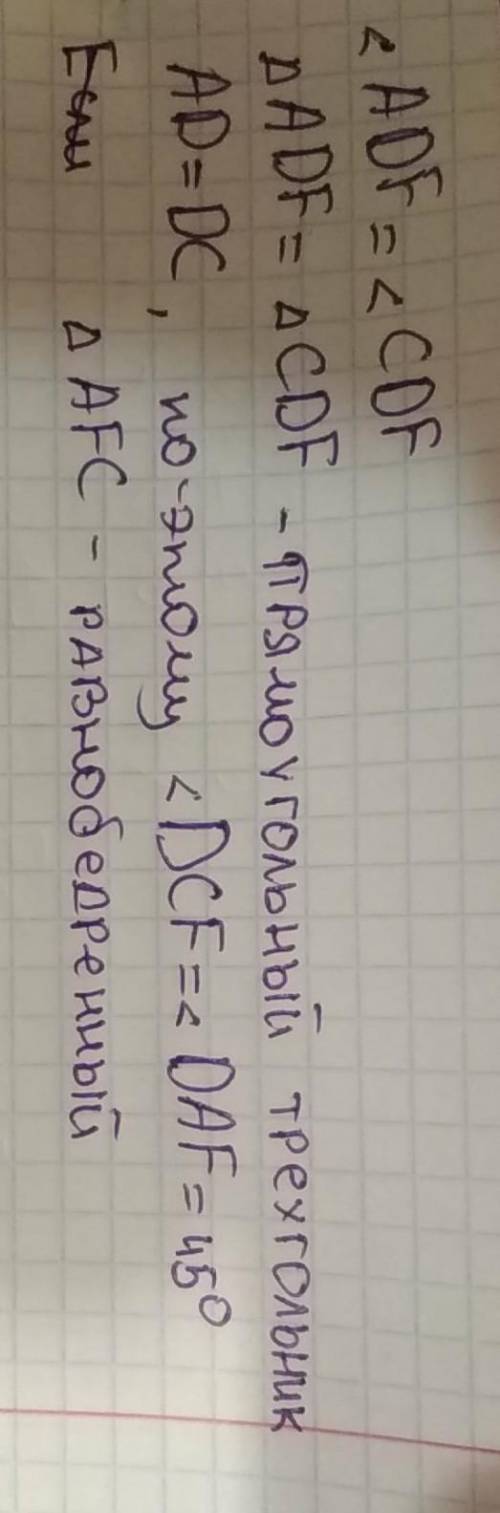 <ADF = <CDF
∆ADF = ∆CDF - прямоугольный трехгольник
AD = DC, по-этому <DCF = < DAF = 45°
Если ∆ AFC - равнобедренный